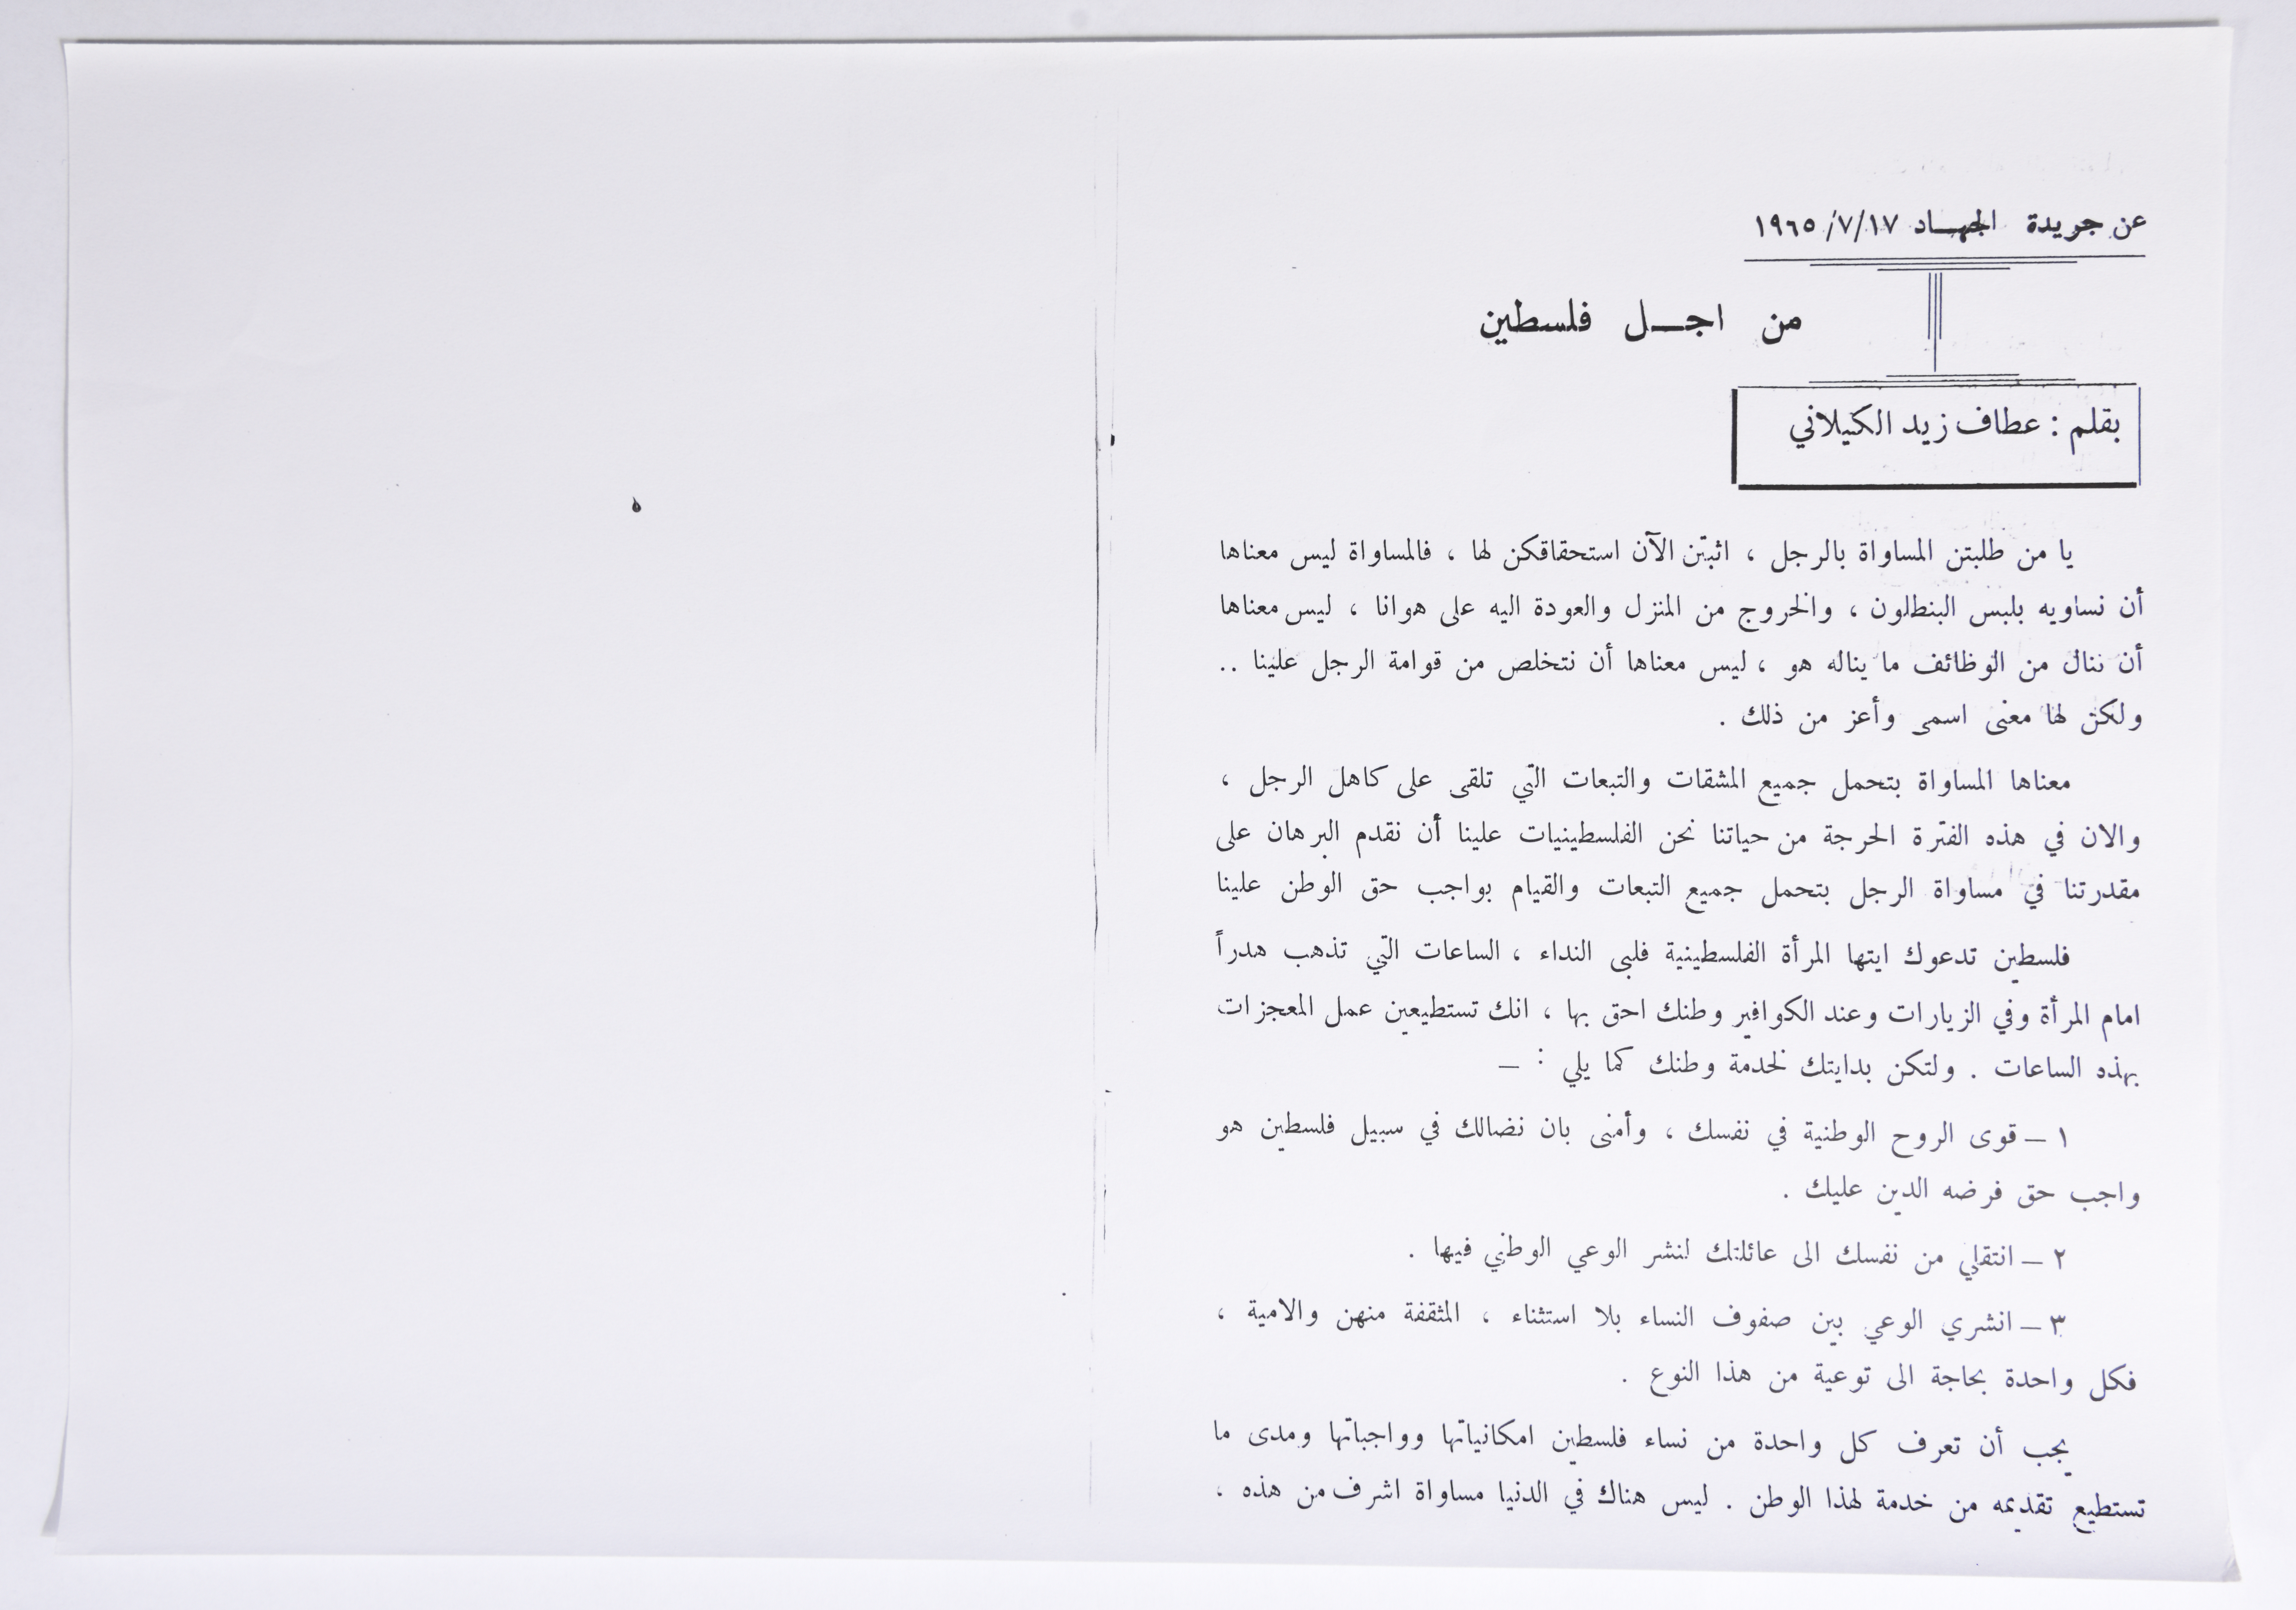 عن جريدة الجهـاد ١٩٦٥/٧/١٧
من اجـــل فلسطين
بقلم : عطاف زيد الكيلاني
يا من طلبتن المساواة بالرجل ، اثبتن الآن استحقاقكن لها ، فالمساواة ليس معناها
أن نساويه بلبس البنطلون ، والخروج من المنزل والعودة اليه على هوانا ، ليس معناها
أن ننال من الوظائف ما يناله هو ، ليس معناها أن نتخلص من قوامة الرجل علينا ..
ولكن لها معنى اسمى وأعز من ذلك .
معناها المساواة بتحمل جميع المشقات والتبعات التي تلقى على كاهل الرجل ،
والان في هذه الفترة الحرجة من حياتنا نحن الفلسطينيات علينا أن نقدم البرهان على
مقدرتنا في مساواة الرجل بتحمل جميع التبعات والقيام بواجب حق الوطن علينا
فلسطين تدعوك ايتها المرأة الفلسطينية فلبى النداء ، الساعات التي تذهب هدراً
امام المرأة وفي الزيارات وعند الكوافير وطنك احق بها ، انك تستطيعين عمل المعجزات
بهذه الساعات . ولتكن بدايتك لخدمة وطنك كما يلي : —
١ — قوى الروح الوطنية في نفسك ، وأمنى بان نضالك في سبيل فلسطين هو
واجب حق فرضه الدين عليك .
٢ — انتقلي من نفسك الى عائلتك لنشر الوعي الوطني فيها .
٣ — انشري الوعي بين صفوف النساء بلا استثناء ، المثقفة منهن والامية ،
فكل واحدة بحاجة الى توعية من هذا النوع .
يجب أن تعرف كل واحدة من نساء فلسطين امكانياتها وواجباتها ومدى ما
تستطيع تقديمه من خدمة لهذا الوطن . ليس هناك في الدنيا مساواة اشرف من هذه ،